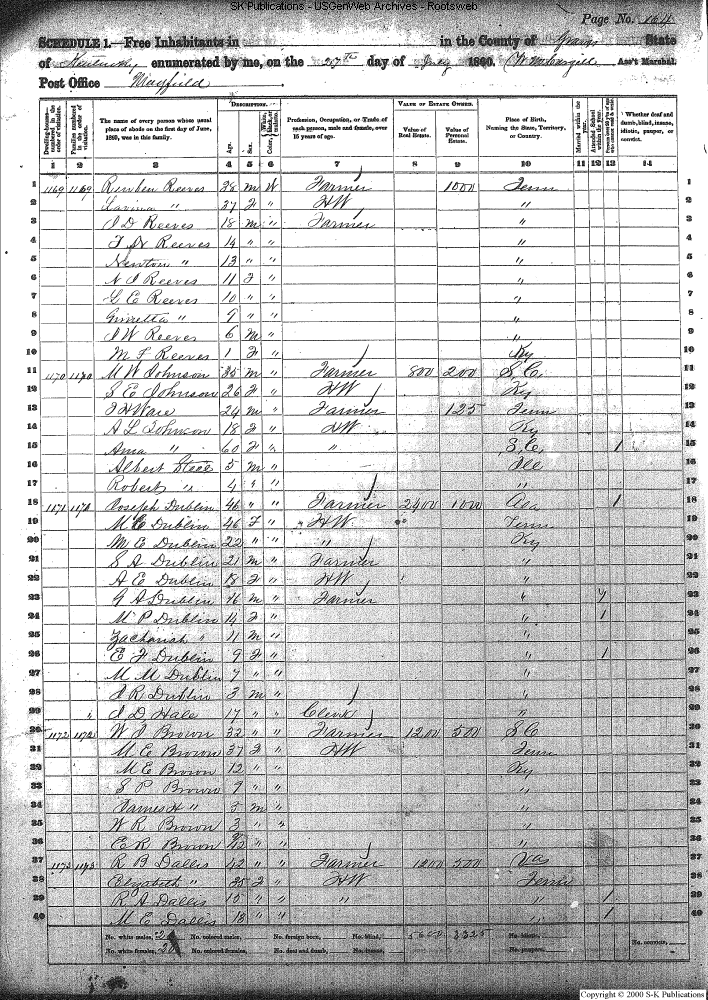 SK Publications - USGenWeb Archives - Rootsweb
Page No. 164
SCHEDULE 1.—Free Inhabitants in in the County of Graves State
of Kentucky enumerated by me, on the 27th day of July 1860. Ass't Marshal.
Post Office Mayfield
Dwelling-houses—numbered in the order of visitation. Families numbered in the order of visitation. The name of every person whose usual place of abode on the first day of June, 1860, was in this family. DESCRIPTION. Age. Sex. Color, White, black, or mulatto. Profession, Occupation, or Trade of each person, male and female, over 15 years of age. VALUE OF ESTATE OWNED. Value of Real Estate. Value of Personal Estate. Place of Birth, Naming the State, Territory, or Country. Married within the year. Attended School within the year. Persons over 20 y'rs of age who cannot read & write. Whether deaf and dumb, blind, insane, idiotic, pauper, or convict.
1 2 3 4 5 6 7 8 9 10 11 12 13 14
1 1169 1169 Reuben Reeves 38 M W Farmer 1000 Tenn 1
2 Lavinia " 37 F " HW " 2
3 J D Reeves 18 M " Farmer " 3
4 Reeves 14 " " " 4
5 Newton " 13 " " " 5
6 N J Reeves 11 F " " 6
7 G E Reeves 10 " " " 7
8 " 9 " " " 8
9 J W Reeves 6 M " " 9
10 M F Reeves 1 F " Ky 10
11 1170 1170 M W Johnson 35 M " Farmer 800 200 S C. 11
12 S E Johnson 26 F " HW Ky 12
13 J H Ware 24 M " Farmer 125 Tenn 13
14 A L Johnson 18 F " HW Ky 14
15 Ama " 60 F " " S. C. 1 15
16 Albert 5 M " Ill 16
17 Robert " 4 " " " 17
18 1171 1171 Joseph Dublin 46 " " Farmer 2400 1000 Geo 1 18
19 M E Dublin 46 F " HW Tenn 19
20 M E Dublin 22 " " " Ky 20
21 S A Dublin 21 M " Farmer " 21
22 A E Dublin 18 F " HW " 22
23 G A Dublin 16 M " Farmer " 23
24 M P Dublin 14 F " " 1 24
25 Zachariah " 11 M " " 25
26 E F Dublin 9 F " " 1 26
27 M M Dublin 7 " " " 27
28 J R Dublin 3 M " " 28
29 " J D Hale 17 " " Clerk " 29
30 1172 1172 W J Brown 32 " " Farmer 1200 500 S C 30
31 M E Brown 37 F " HW Tenn 31
32 M E Brown 12 " " Ky 32
33 S P Brown 9 " " " 33
34 James H " 5 M " " 34
35 W R Brown 3 " " " 35
36 E R Brown " " " 36
37 1173 1173 R B Dallis 42 " " Farmer 1200 500 Va 37
38 Elizabeth " 35 F " HW Tenn 38
39 R A Dallis 15 " " " " 1 39
40 M E Dallis 13 " " " 1 40
No. white males, No. colored males, No. foreign born, No. blind, 5600 3325 No. idiotic,
No. white females, No. colored females, No. deaf and dumb, No. insane, No. paupers, No. convicts,
Copyright © 2000 S-K Publications